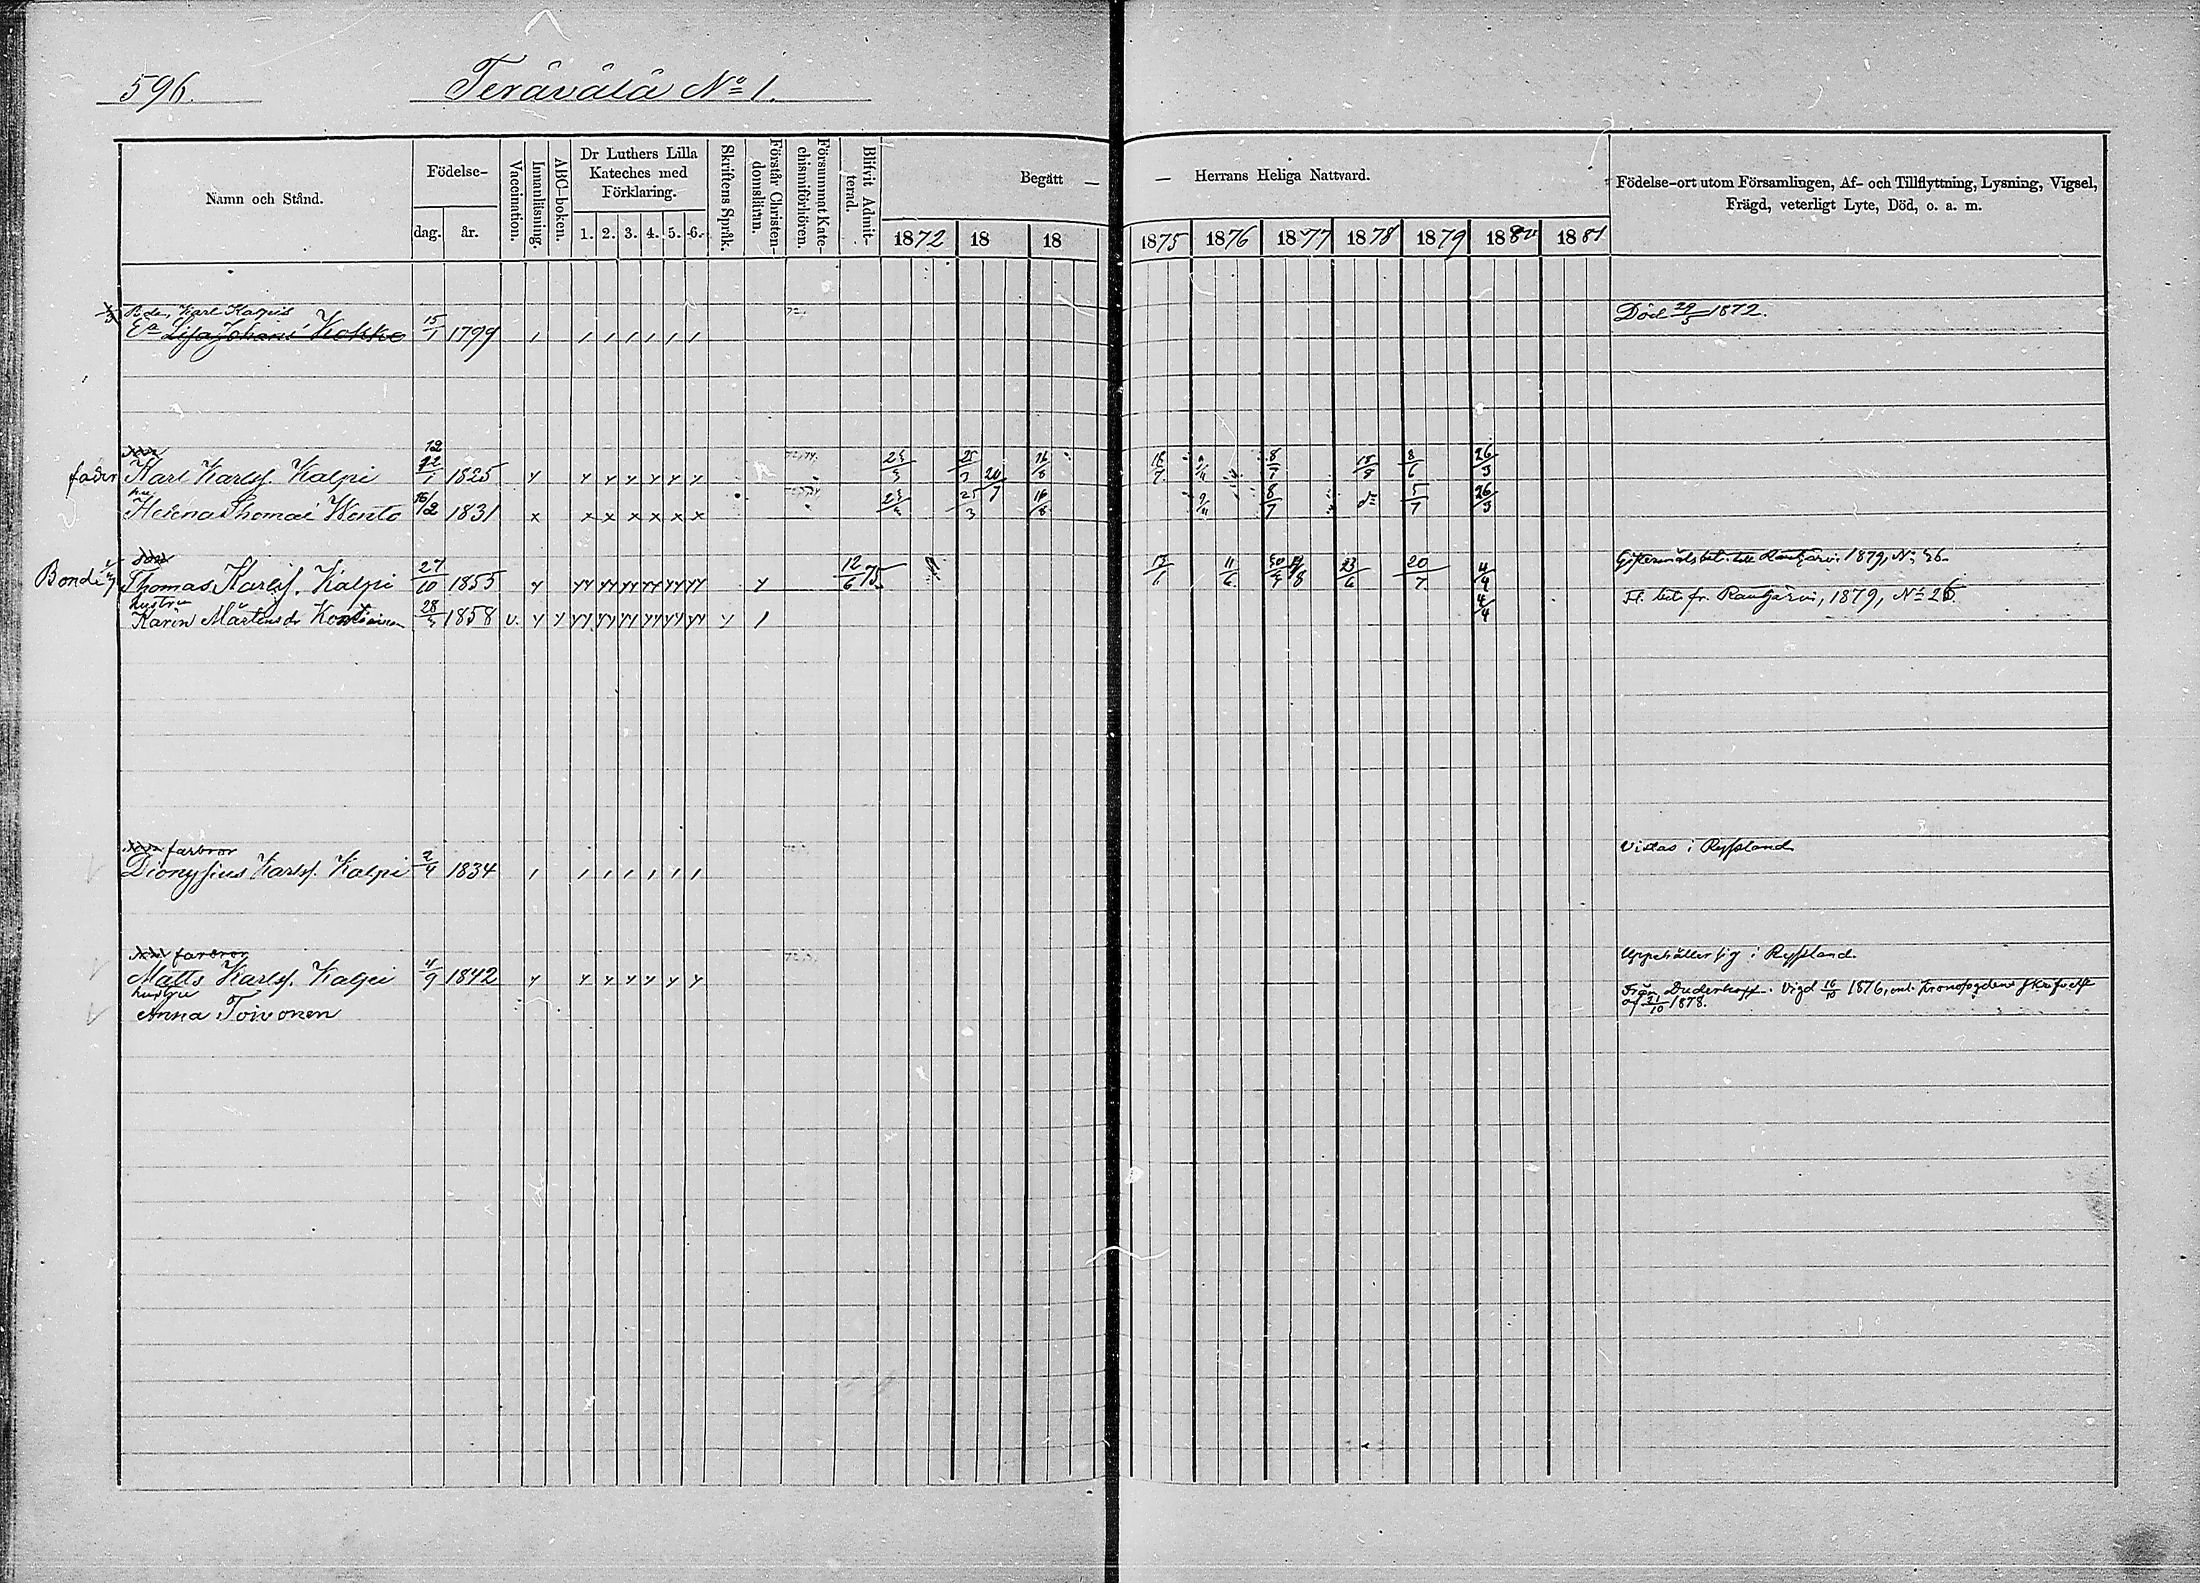 596. Terävälä No 1.
Namn och Stånd.
Födelse-
dag. år.
Vaccination.
Innanläsning.
ABC-boken.
Dr Luthers Lilla
Kateches med
Förklaring.
1. 2. 3. 4. 5. 6.
Skriftens Språk.
Förstår Christen-
domsläran.
Försummat Kate-
chismiförhören.
Blifvit Admit-
terad.
Begått — — Herrans Heliga Nattvard.
1872 18 18 1875 1876 1877 1878 1879 1880 1881
Födelse-ort utom Församlingen, Af- och Tillflyttning, Lysning, Vigsel,
Frägd, veterligt Lyte, Död, o. a. m.
Bde, Karl Kalpis
Ea Lisa Johansd Kokko 15/1 1799 Död 29/5 1872.
fader Karl Karlss. Kalpi 1825
hu
Helena Thomæ Wento 16/2 1831
Bonde Thomas Karlss. Kalpi 27/10 1855 12/6 75 Giftermålsbet. till Rautjärvi 1879, No 46.
hustru
Karin Mårtensdr Kontiainen 1858 v. Fl. bet. fr. Rautjärvi, 1879, No 26.
farbror
Dionysius Karlss. Kalpi 2/4 1834 Vistas i Ryssland
farbror
Matts Karlss. Kalpi 4/9 1842 Uppehåller sig i Ryssland.
hustru
Anna Toivonen Från Duderhoff. Vigd 16/10 1876, enl. kronofogdens skrifvelse
af 21/10 1878.